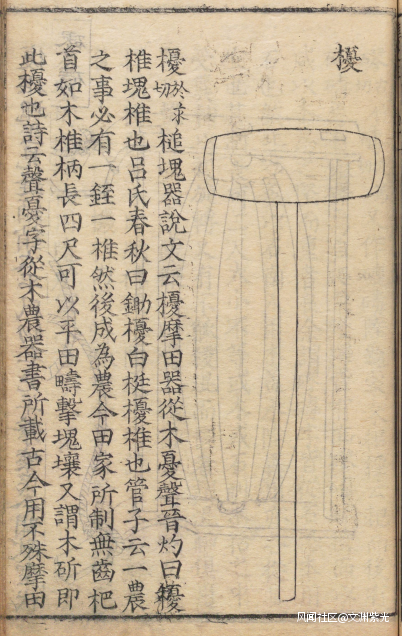 櫌
櫌於求切槌塊器說文云櫌摩田器從木憂聲晉灼曰櫌
椎塊椎也呂氏春秋曰鋤櫌白梃櫌椎也管子云一農
之事必有一銍一椎然後成為農今田家所制無齒杷
首如木椎柄長四尺可以平田疇擊塊壤又謂木斫即
此櫌也詩云聲憂字從才農器書所載古今用不殊摩田
风闻社区@文渊紫光